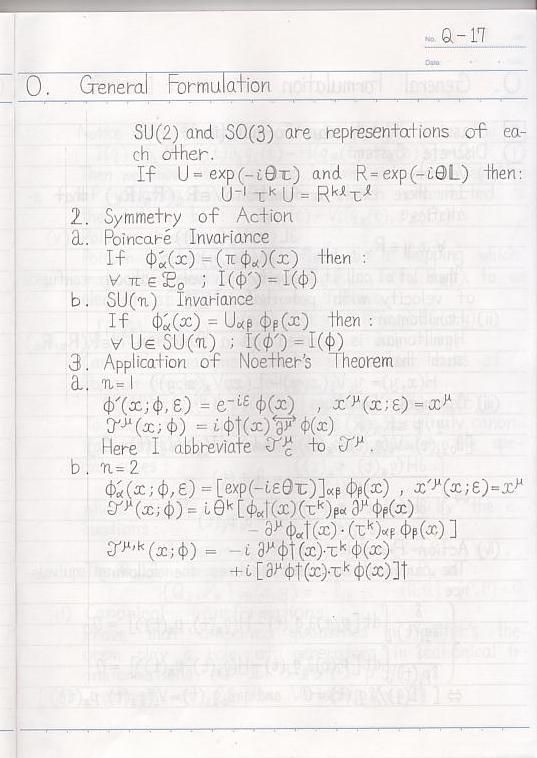 No. Q-17
Date
0. General Formulation
SU(2) and SO(3) are representations of ea-
ch other.
If U = exp(-iθτ) and R = exp(-iθ𝕃) then:
U⁻¹ τᵏ U = Rᵏˡ τˡ
2. Symmetry of Action
a. Poincaré Invariance
If ϕ'α(x) = (π ϕα)(x) then :
∀ π ∈ 𝒫₀ ; I(ϕ') = I(ϕ)
b. SU(n) Invariance
If ϕ'α(x) = Uαβ ϕβ(x) then :
∀ U ∈ SU(n) ; I(ϕ') = I(ϕ)
3. Application of Noether's Theorem
a. n=1
ϕ'(x;ϕ,ε) = e^{-iε} ϕ(x) , x'^μ(x;ε) = x^μ
𝒯^μ(x;ϕ) = i ϕ†(x) ∂^μ↔ ϕ(x)
Here I abbreviate 𝒯^μ_C to 𝒯^μ.
b. n=2
ϕ'α(x;ϕ,ε) = [exp(-iεθτ)]αβ ϕβ(x) , x'^μ(x;ε)=x^μ
𝒯^μ(x;ϕ) = i θᵏ[ϕα†(x)(τᵏ)βα ∂^μ ϕβ(x)
- ∂^μ ϕα†(x)·(τᵏ)αβ ϕβ(x)]
𝒯^{μ,k}(x;ϕ) = -i ∂^μ ϕ†(x)·τᵏ ϕ(x)
+i [∂^μ ϕ†(x)·τᵏ ϕ(x)]†